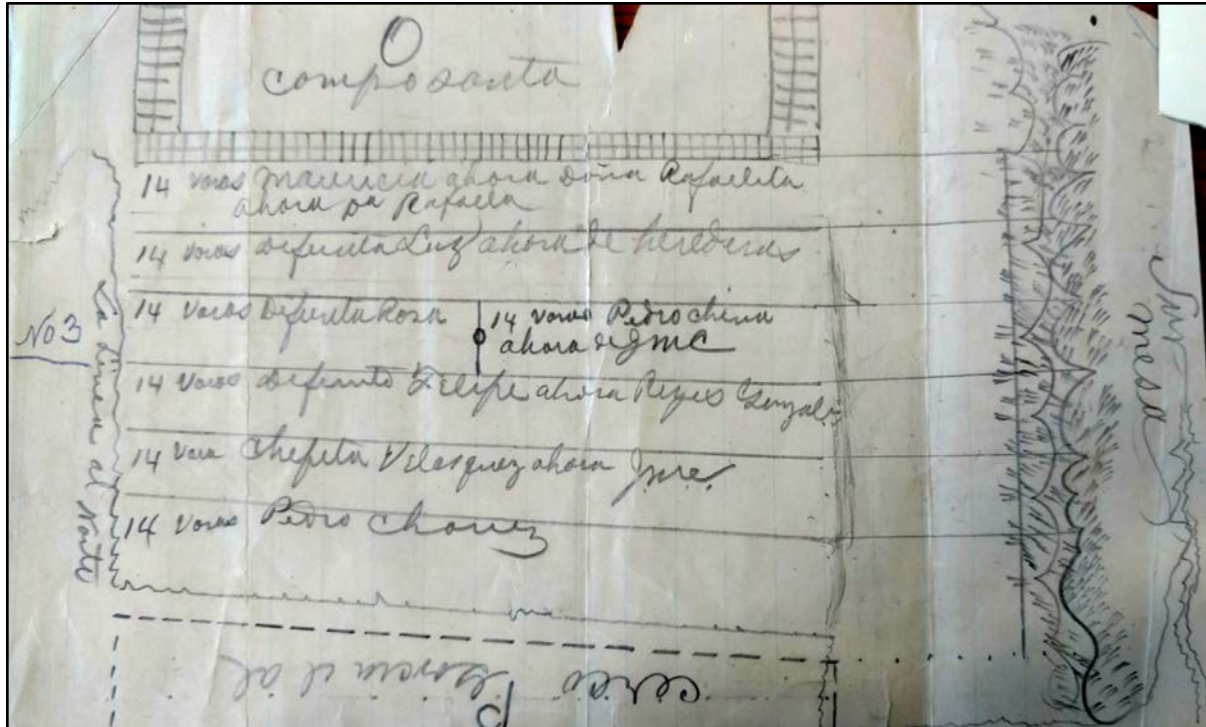 O
composanta
14 varas Mauricia ahora Doña Rafaelita
ahora pa Rafaela
14 varas Difunta Luz ahora de herederas
No 3
La Linea al Norte
14 varas Difunta Rosa
14 varas Pedro china
ahora de JMC
14 Varas Difunto Felipe ahora Reyes Gonzales
14 Vara Chefita Velasquez ahora
14 Varas Pedro Chavez
cerco
al
Sur
mesa